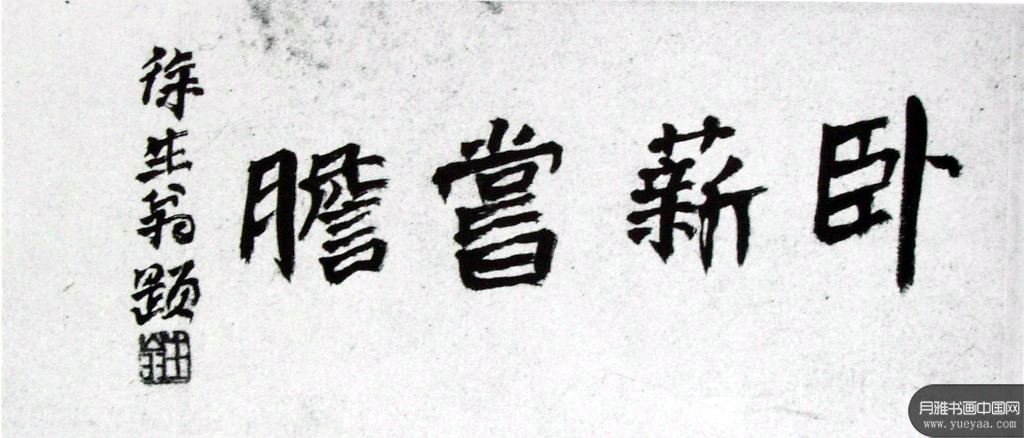 卧薪嘗膽
徐生翁题
月雅书画中国网
www.yueyaa.com